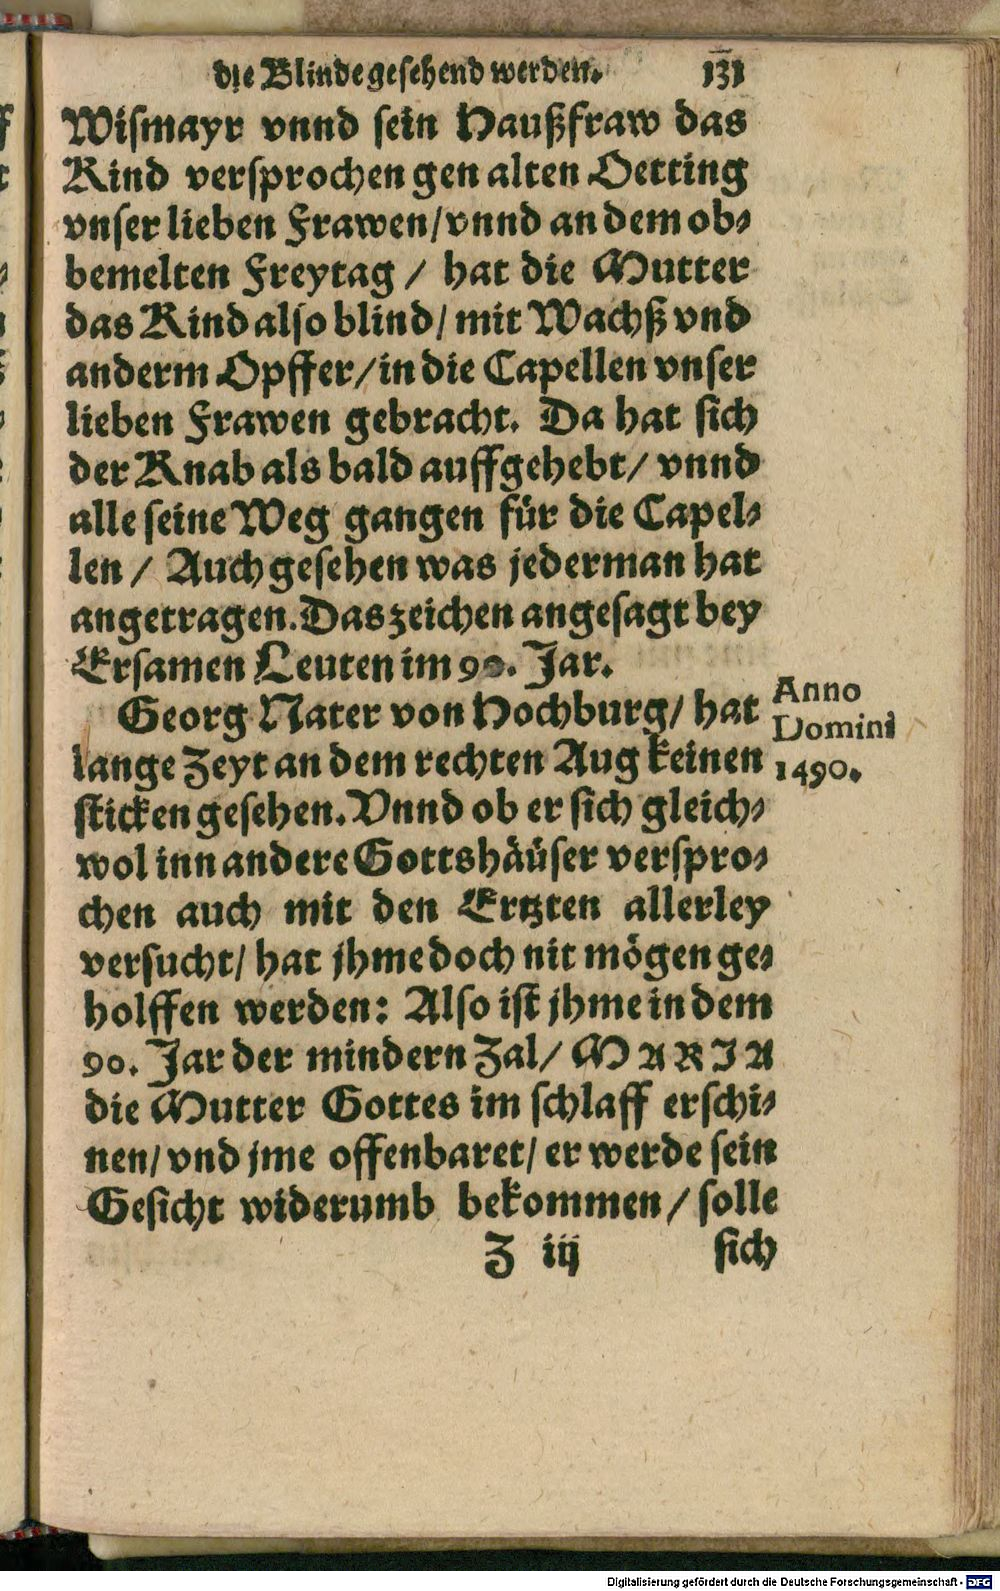 die Blinde gesehend werden. 131
Wismayr vnnd sein Haußfraw das
Kind versprochen gen alten Oetting
vnser lieben Frawen/vnnd an dem ob⸗
bemelten Freytag / hat die Mutter
das Kind also blind/ mit Wachß vnd
anderm Opffer/in die Capellen vnser
lieben Frawen gebracht. Da hat sich
der Knab als bald auffgehebt/ vnnd
alle seine Weg gangen für die Capel⸗
len / Auch gesehen was jederman hat
angetragen. Das zeichen angesagt bey
Ersamen Leuten im 90. Jar.
Georg Nater von Hochburg/ hat
lange Zeyt an dem rechten Aug keinen
sticken gesehen. Vnnd ob er sich gleich⸗
wol inn andere Gottshäüser verspro⸗
chen auch mit den Ertzten allerley
versucht/ hat jhme doch nit mögen ge⸗
holffen werden: Also ist jhme in dem
90. Jar der mindern Zal/ MARIA
die Mutter Gottes im schlaff erschi⸗
nen/ vnd jme offenbaret/ er werde sein
Gesicht widerumb bekommen / solle
Z iij sich
Anno
Domini
1490.
Digitalisierung gefördert durch die Deutsche Forschungsgemeinschaft - DFG